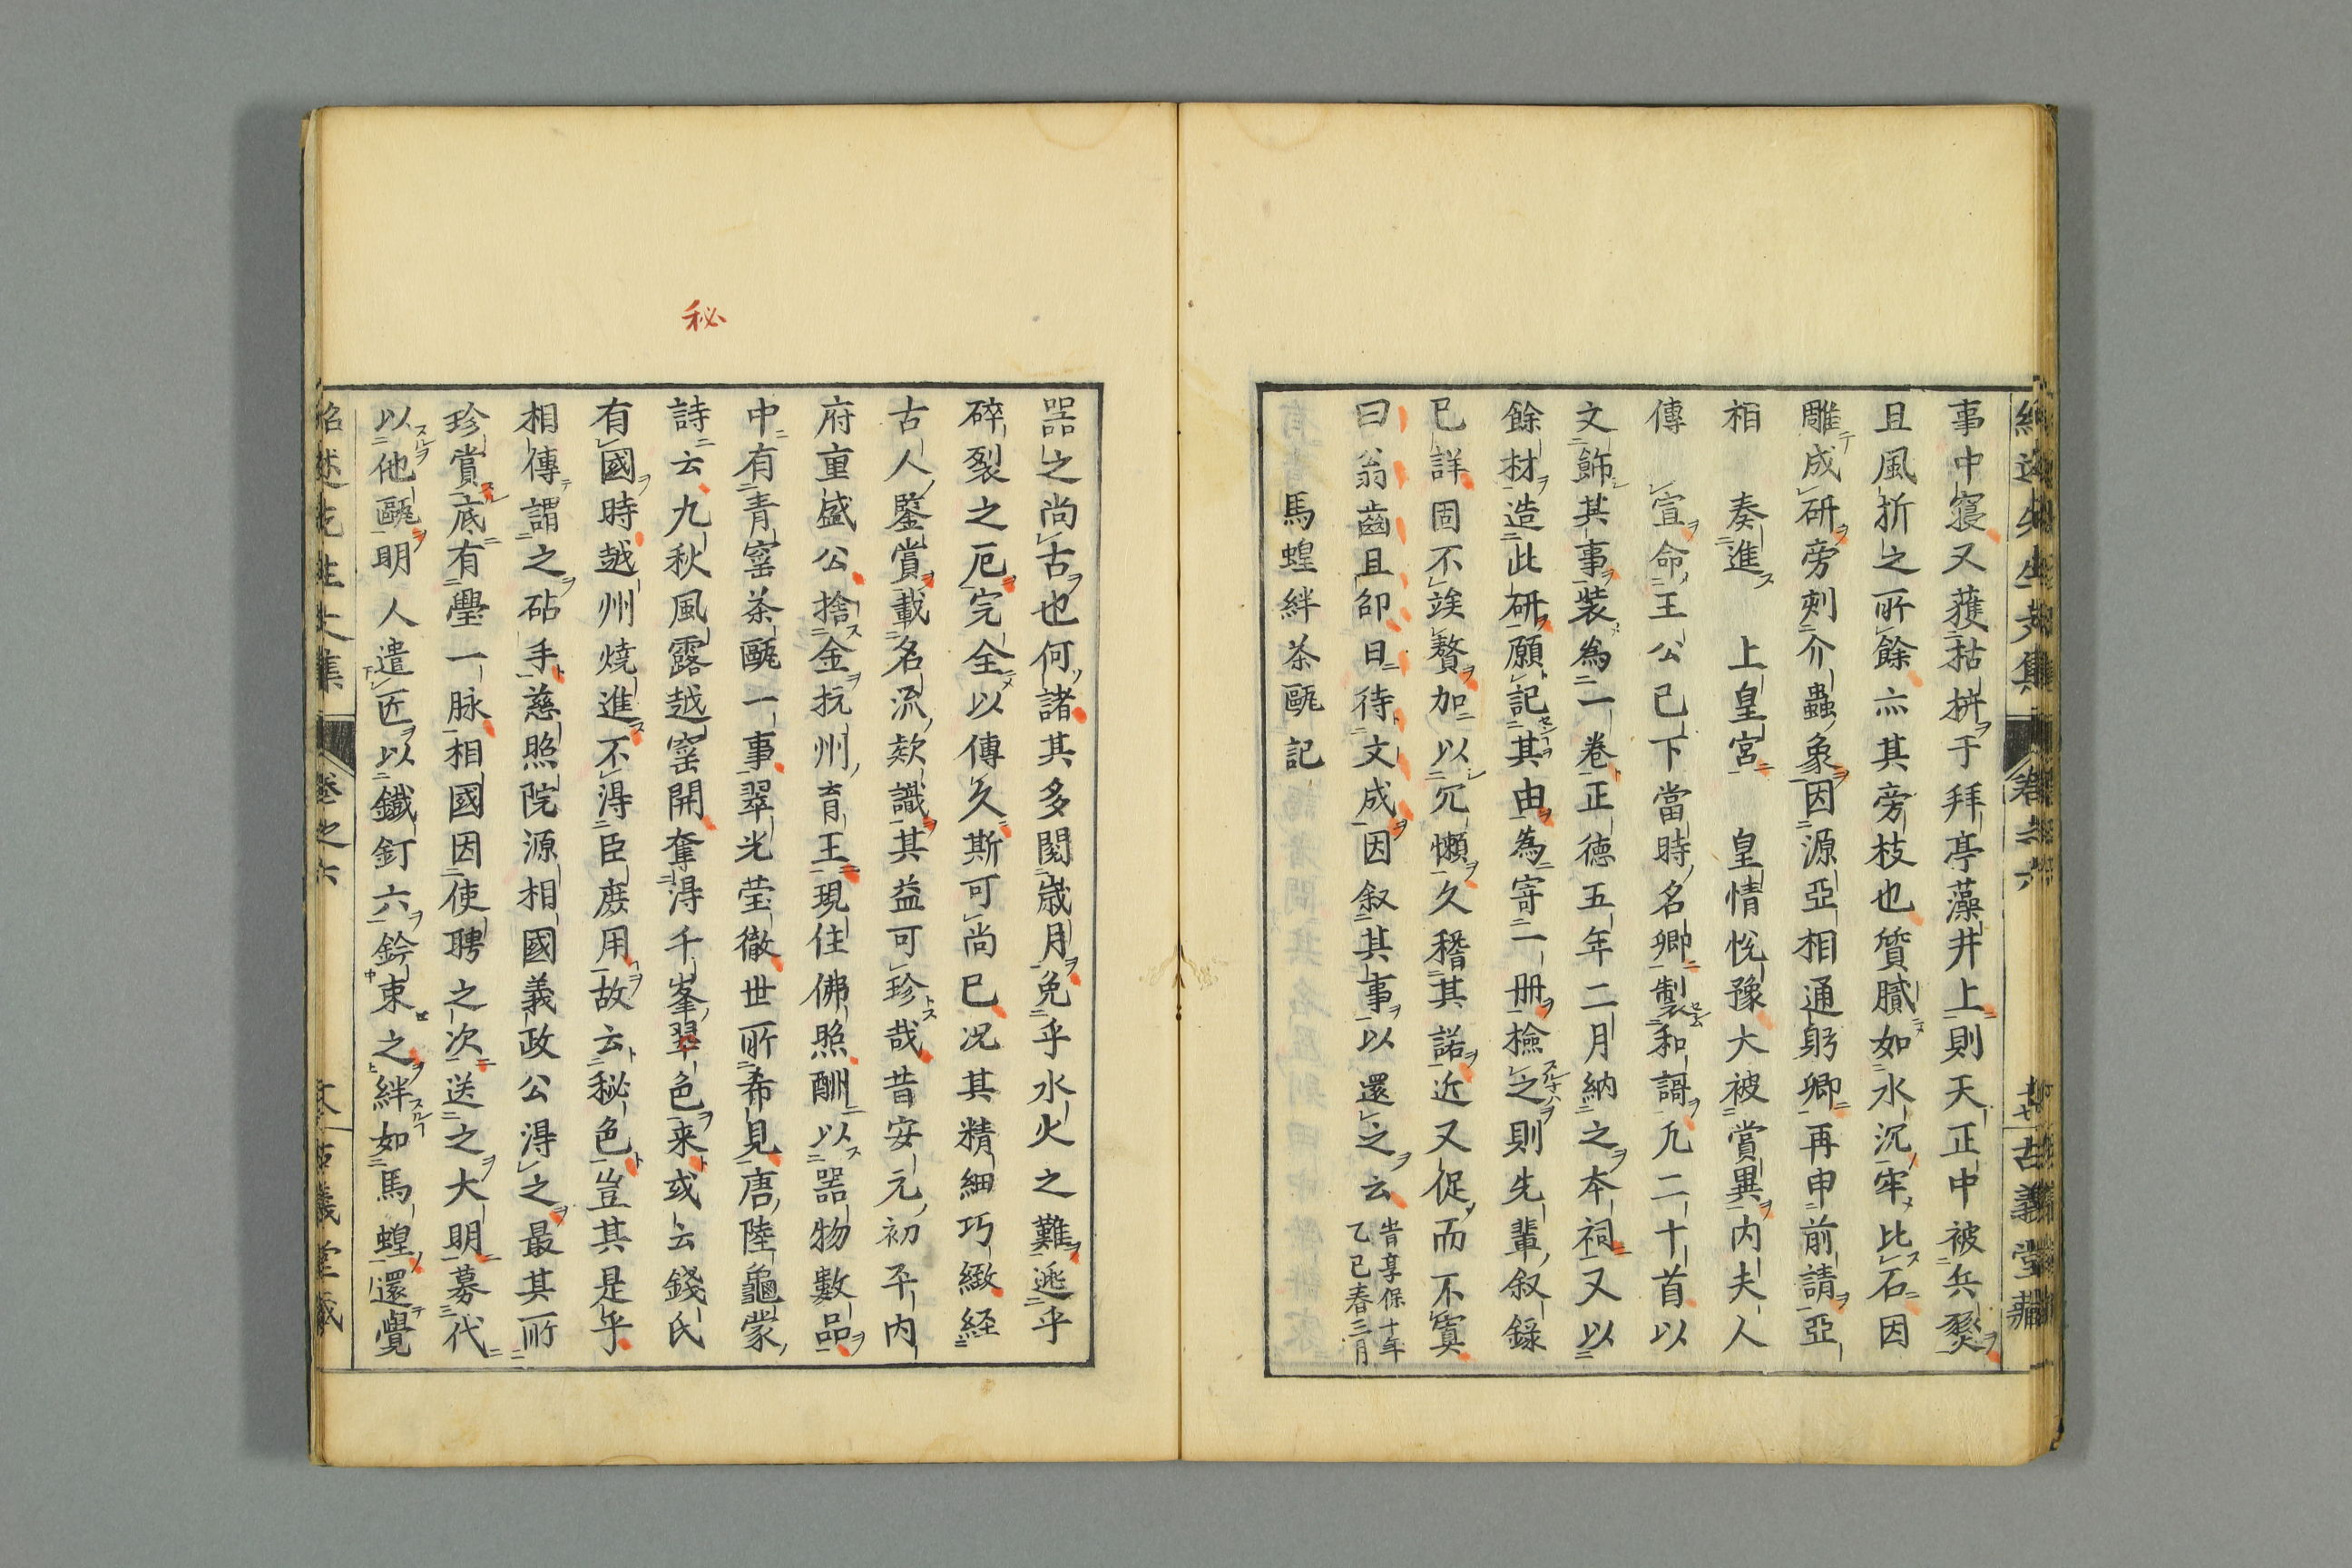 事中寝又獲拈拼于拜亭藻井上則天正中被兵燹
且風折之所餘亦其旁枝也質膩如氷沉牢比石因
雕成研旁刺介蟲象因源亞相通躬卿再申前請亞
相 奏進 上皇宮 皇情悅豫大被賞異内夫人
傳 宣命王公已下當時名卿製和謌凡二十首以
文飾其事装為一卷正德五年二月納之本祠又以
餘材造此研願記其由為寄一册檢之則先輩叙録
已詳固不竢贅加以冗懶久稽其諾近又促而不寘
曰翁齒且卲日待文成因叙其事以還之云
旹享保十年
乙巳春三月
馬蝗絆茶甌記
器之尚古也何諸其多閲歳月免乎水火之難逃乎
碎裂之厄完全以傳久斯可尚已况其精細巧緻経
古人鑒賞載名流欵識其益可珍哉昔安元初平内
府重盛公捨金抗州育王現住佛照酬以器物數品
中有青窰茶甌一事翠光莹徹世所希見唐陸龜蒙
詩云九秋風露越窰開奪得千峯翠色来或云錢氏
有國時越州燒進不得臣庶用故云秘色豈其是乎
相傳謂之砧手慈照院源相國義政公得之最其所
珍賞底有璺一脉相國因使聘之次送之大明募代
以他甌明人遣匠以鐵釘六鈐束之絆如馬蝗還覺
秘
卷之六
古義堂藏